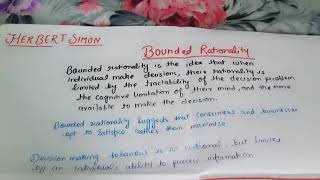 HERBERT SIMON
Bounded Rationality
Bounded rationality is the idea that when
individual make decisions, their rationality is
limited by the tractability of the decision problem
the cognitive limitation of their mind, and the time
available to make the decision.
Bounded rationality suggests that consumers and businesses
opt to satisfice rather than maximise
Decision making behaviour is not rational, but limited
by an individual's ability to process information